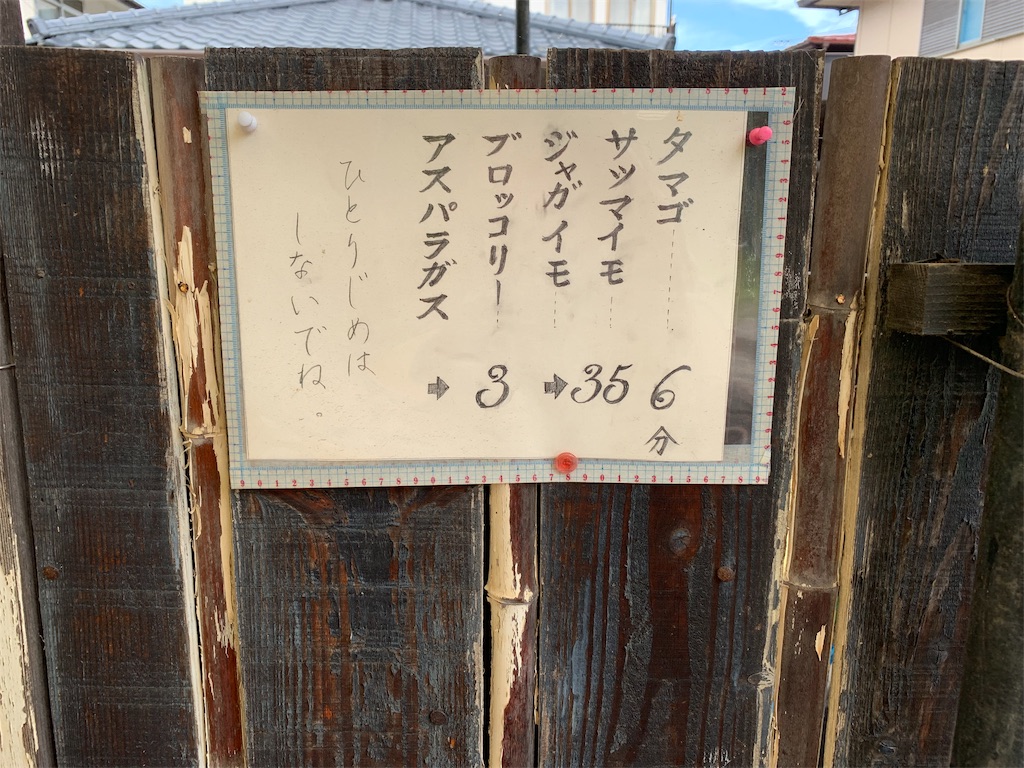 タマゴ 6分
サツマイモ 35
ジャガイモ ➡
ブロッコリー 3
アスパラガス ➡
ひとりじめは
しないでね。